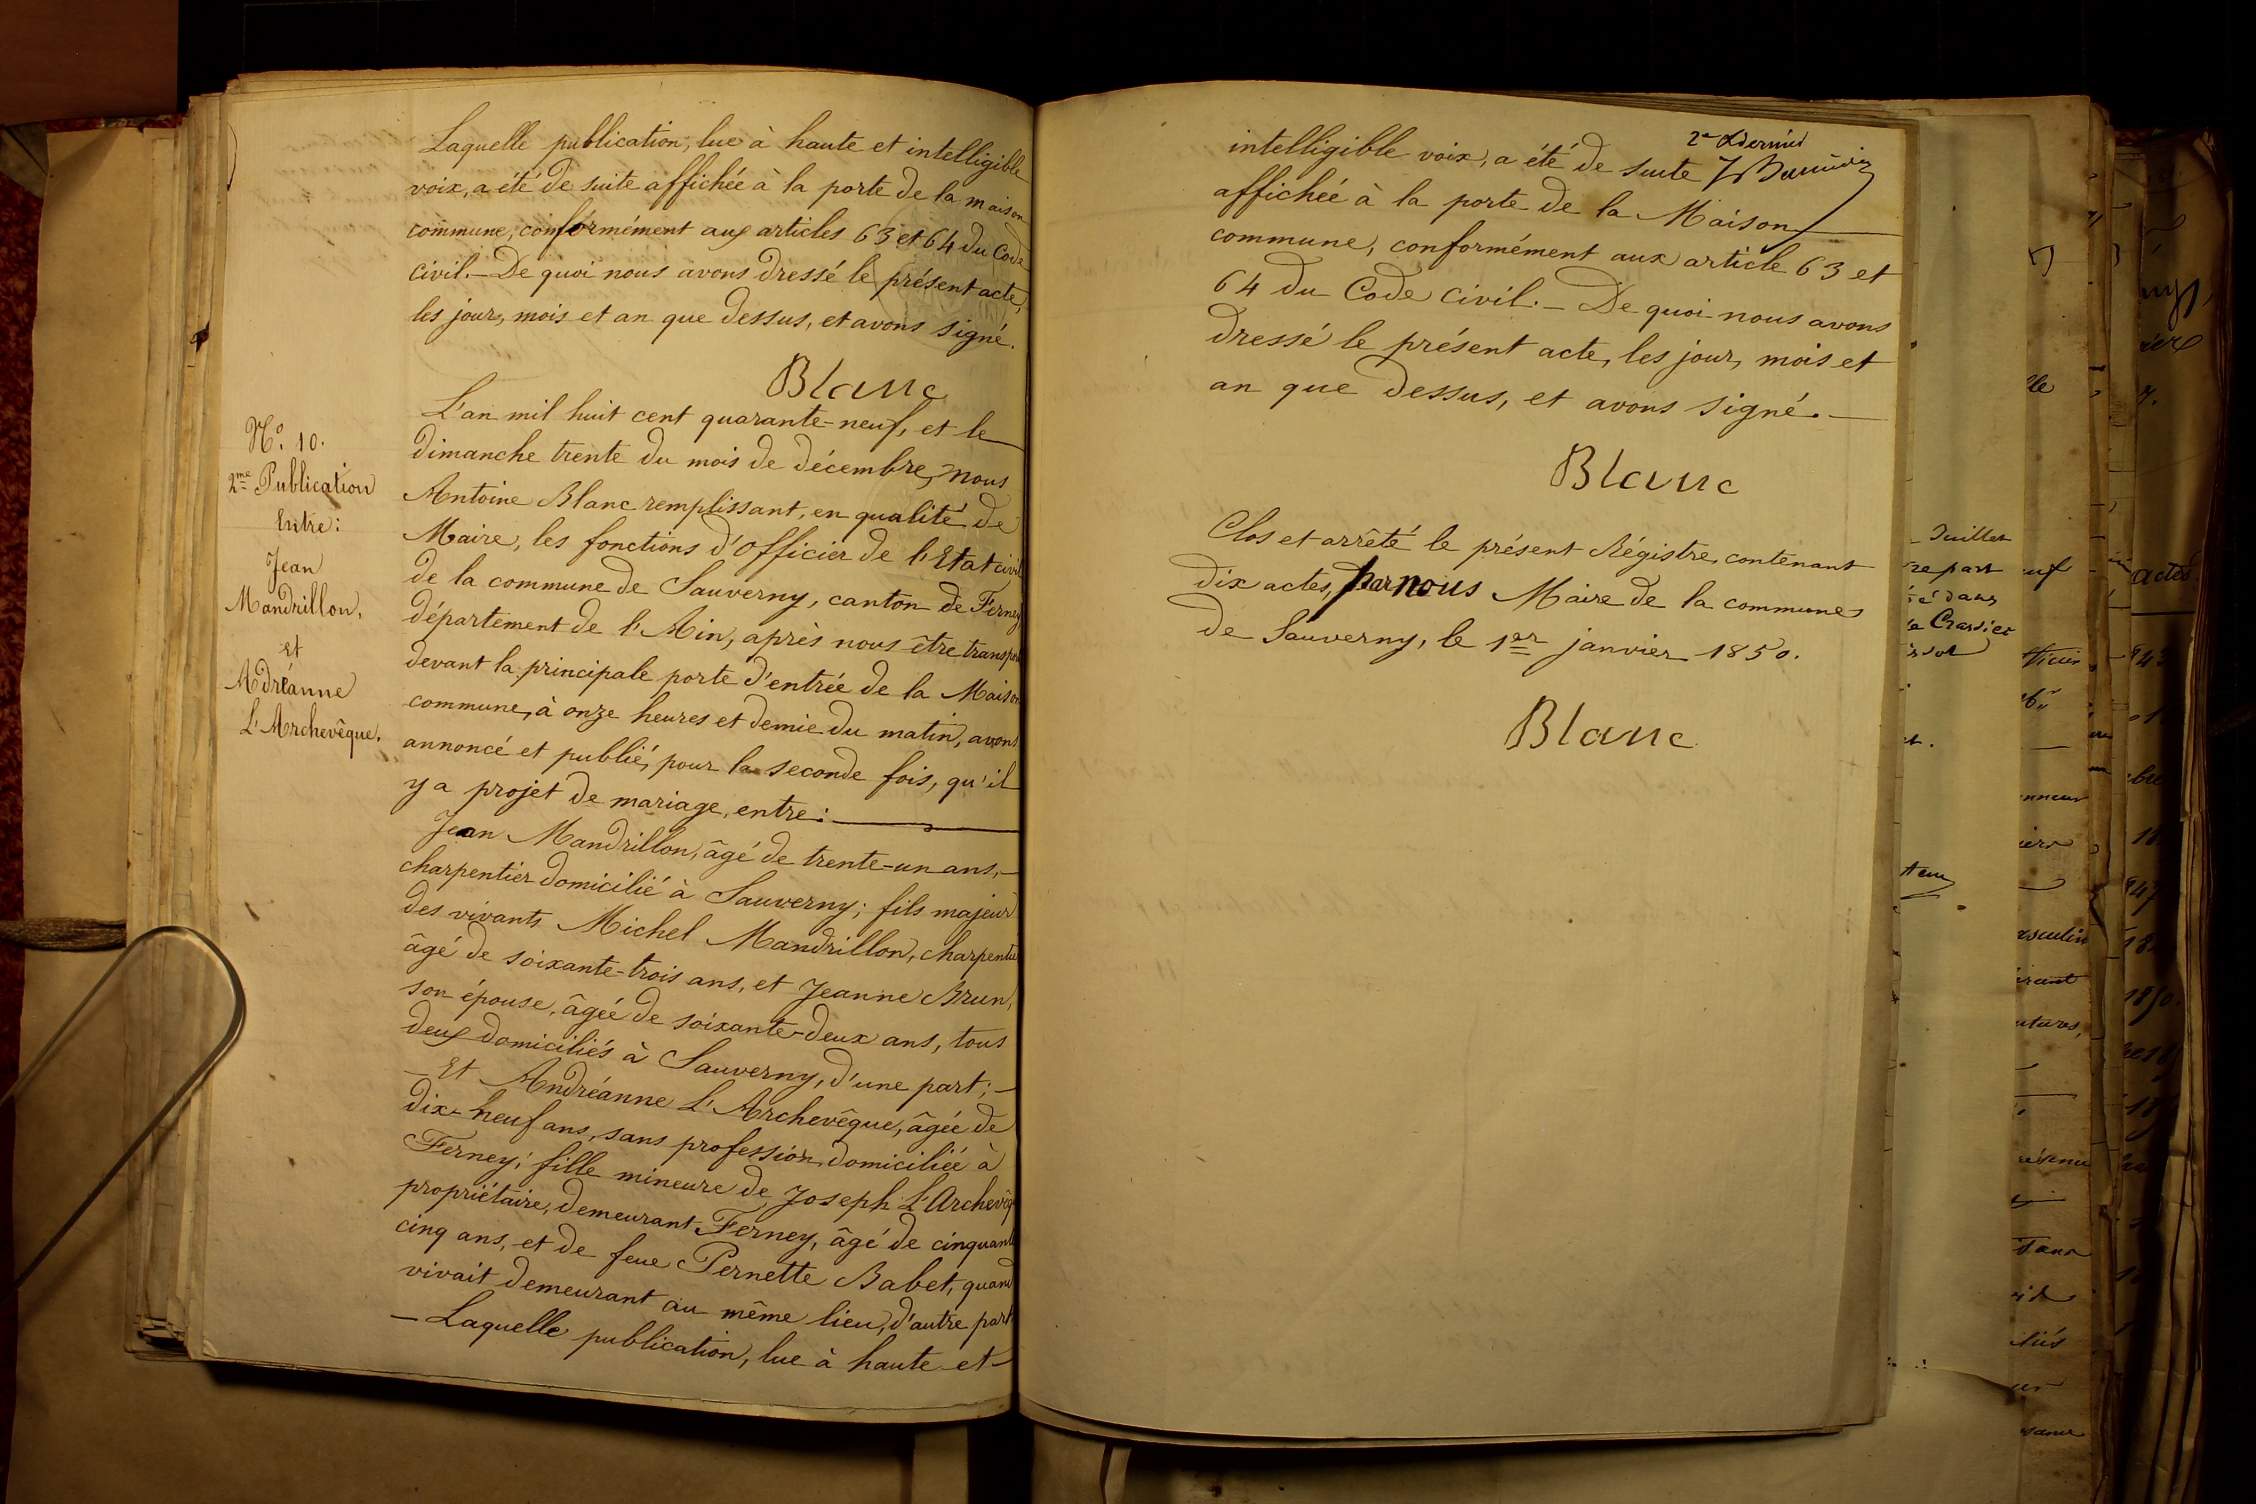 Laquelle publication, lue à haute et intelligible
voix, a été de suite affichée à la porte de la maison
commune, conformément aux articles 63 et 64 du Code
civil. — De quoi nous avons dressé le présent acte,
les jour, mois et an que dessus, et avons signé.
Blanc
N.º 10.
2.me Publication
Entre:
Jean
Mandrillon,
et
Adréanne
L'Archevêque.
L'an mil huit cent quarante-neuf, et le
dimanche trente du mois de décembre, nous
Antoine Blanc remplissant, en qualité de
Maire, les fonctions d'Officier de l'Etat civil
de la commune de Sauverny, canton de Ferney
département de l'Ain, après nous être transpor
devant la principale porte d'entrée de la Maison
commune, à onze heures et demie du matin, avons
annoncé et publié, pour la seconde fois, qu'il
y a projet de mariage, entre: —
Jean Mandrillon, âgé de trente-un ans, —
charpentier domicilié à Sauverny; fils majeur
des vivants Michel Mandrillon, charpentier
âgé de soixante-trois ans, et Jeanne Brun,
son épouse, âgée de soixante-deux ans, tous
deux domiciliés à Sauverny, d'une part; —
— Et Andréanne L'Archevêque, âgée de
dix-neuf ans, sans profession, domiciliée à
Ferney; fille mineure de Joseph L'Archevêq
propriétaire, demeurant Ferney, âgé de cinquant
cinq ans, et de feue Pernette Babet, quand
vivait demeurant au même lieu, d'autre part
— Laquelle publication, lue à haute et
2e & dernier
intelligible voix, a été de suite
affichée à la porte de la Maison
commune, conformément aux article 63 et
64 du Code civil. — De quoi nous avons
dressé le présent acte, les jour, mois et
an que dessus, et avons signé. —
Blanc
Clos et arrêté le présent Régistre, contenant
dix actes, par nous Maire de la commune
de Sauverny, le 1er janvier 1850.
Blanc
Juillet